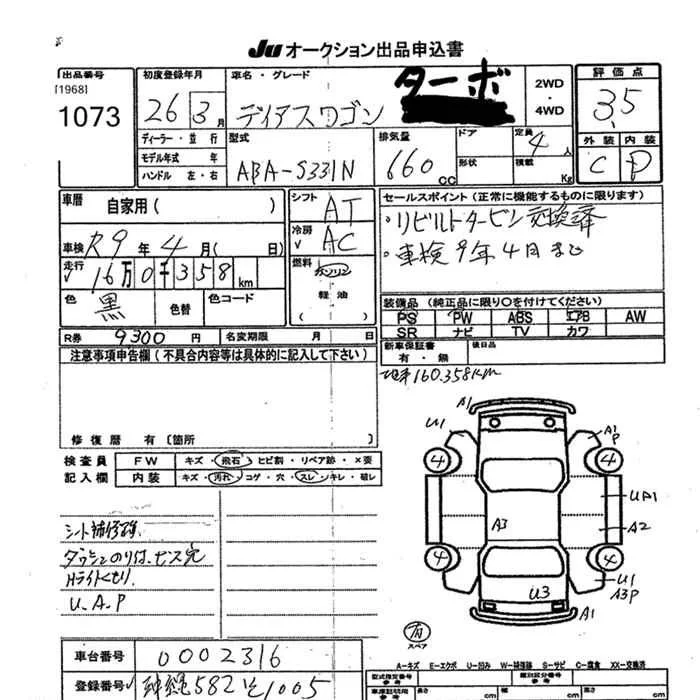 Ju オークション出品申込書
出品番号
[1968]
1073
初度登録年月
26 3月
ディーラー・並行
モデル年式 年
ハンドル 左・右
車名・グレード
ディアスワゴン ターボ
2WD
・
4WD
評価点
3.5
外装 内装
C D
型式
ABA-S331N
排気量
660 CC
ドア
形状
定員
4人
積載
Kg
車歴
自家用( )
車検 R9年 4月( 日)
走行
16万0千358 km
色
黒
色替
色コード
シフト
AT
冷房
AC
燃料
ガソリン
・
軽油
( )
セールスポイント(正常に機能するものに限ります)
・リビルトタービン交換済
・車検9年4月まで
装備品(純正品に限り○を付けてください)
PS PW ABS エアB AW
SR ナビ TV カワ
R券 9300円
名変期限 月 日
新車保証書
有・無
後日品
160.358km
注意事項申告欄(不具合内容等は具体的に記入して下さい)
修復歴 有〔箇所 〕
検査員
記入欄
FW キズ・飛石・ヒビ割・リペア跡・×要
内装 キズ・汚れ・コゲ・穴・スレ・キレ・破レ
シート補修跡
ダッシュのり付、ビス穴
Hライトくもり
U.A.P
A1
U1
A1
P
4
4
UA1
A3
A2
4
4
U3
U1
A3P
A1
有
スペア
A-キズ E-エクボ U-凹み W-補修跡 S-サビ C-腐食 XX-交換済
車台番号 0002316
登録番号 沖縄582そ1005
型式指定番号
参考
類別区分番号
参考
車庫証明用
参考
長さ cm
幅 cm
高さ cm